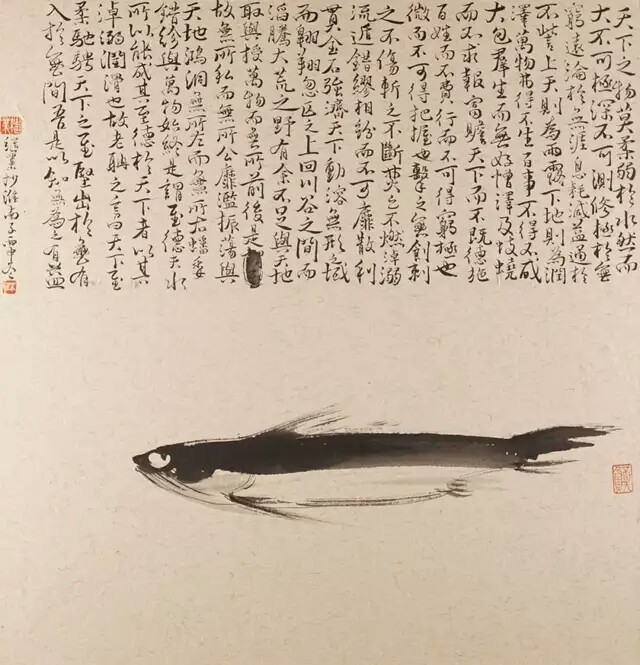 天下之物莫柔弱於水然而
大不可極深不可測修極於無
窮遠淪於無涯息耗減益通於
不訾上天則為雨露下地則為潤
澤萬物弗得不生百事不得不成
大包群生而無好憎澤及蚑蟯
而不求報富贍天下而不既德施
百姓而不費行而不可得窮極也
微而不可得把握也擊之無創刺
之不傷斬之不斷焚之不燃淖溺
流遁錯繆相紛而不可靡散利
貫金石強濟天下動溶無形之域
而翱翔忽区之上回川谷之間而
滔騰大荒之野有余不足與天地
取與授萬物而無所前後是
故無所私而無所公靡濫振蕩與
天地鴻洞無所左而無所右蟠委
錯紾與萬物始終是謂至德夫水
所以能成其至德於天下者以其
淖溺潤滑也故老聃之言曰天下至
柔馳騁天下之至堅出於無有
入於無間吾是以知無為之有益
抄淮南子丙申冬